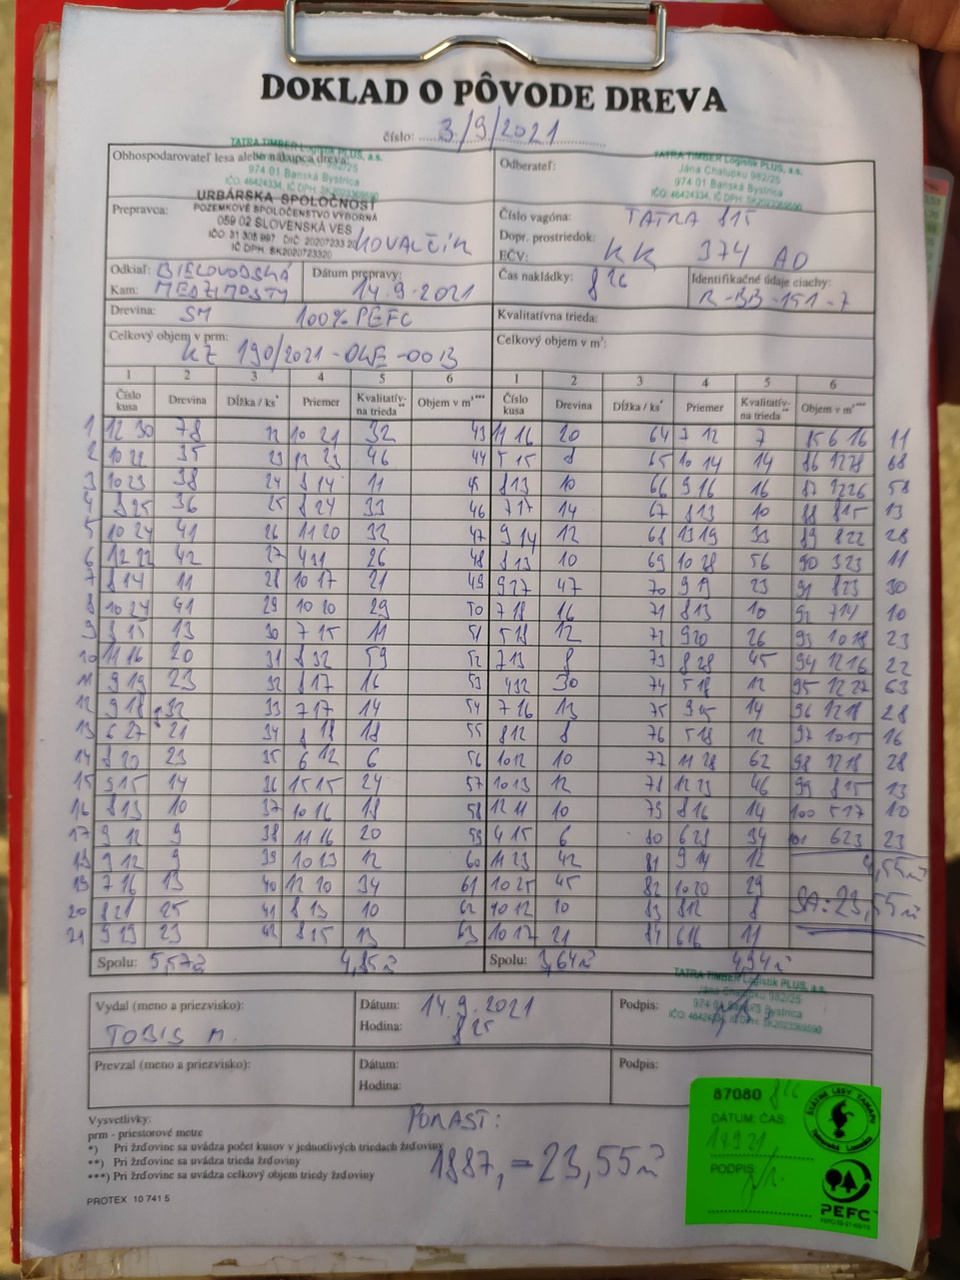 DOKLAD O PÔVODE DREVA
číslo: 3/9/2021
Obhospodarovateľ lesa alebo nákupca dreva:
TATRA TIMBER Logistik PLUS, a.s.
974 01 Banská Bystrica
IČO: 46424334, IČ DPH: SK2023369590
Odberateľ:
TATRA TIMBER Logistik PLUS, a.s.
Jána Chalupku 982/25
974 01 Banská Bystrica
IČO: 46424334, IČ DPH: SK2023369590
Prepravca:
URBÁRSKA SPOLOČNOSŤ
POZEMKOVÉ SPOLOČENSTVO VÝBORNÁ
059 02 SLOVENSKÁ VES
IČO 31 305 997 DIČ 20207233 20
IČ DPH: SK2020723320
KOVALČÍK
Číslo vagóna: TATRA 815
Dopr. prostriedok:
EČV: KK 374 AO
Odkiaľ: BIELOVODSKÁ
Kam: MEDZIMOSTY
Dátum prepravy:
14.9.2021
Čas nakládky: 826
Identifikačné údaje ciachy:
R-BB-151-7
Drevina: SM 100% PEFC
Kvalitatívna trieda:
Celkový objem v prm:
KZ 190/2021-OLE-0013
Celkový objem v m³:
1 2 3 4 5 6 1 2 3 4 5 6
Číslo kusa Drevina Dĺžka / ks* Priemer Kvalitatív- na trieda** Objem v m³*** Číslo kusa Drevina Dĺžka / ks* Priemer Kvalitatív- na trieda** Objem v m³***
1 12 30 78 22 10 21 32 43 11 16 20 64 7 12 7 85 6 16 11
2 10 22 35 23 12 23 46 44 5 15 8 65 10 14 14 86 12 28 68
3 10 23 38 24 8 14 11 45 8 13 10 66 9 16 16 87 12 26 58
4 8 25 36 25 8 24 33 46 7 17 14 67 8 13 10 88 8 15 13
5 10 24 41 26 11 20 32 47 9 14 12 68 13 19 33 89 8 22 28
6 12 22 42 27 4 31 26 48 8 13 10 69 10 28 56 90 3 23 11
7 8 14 11 28 10 17 21 49 9 27 47 70 9 19 23 91 8 23 30
8 10 24 41 29 10 20 29 50 7 18 16 71 8 13 10 92 7 14 10
9 8 15 13 30 7 15 11 51 5 18 12 72 9 20 26 93 10 18 23
10 11 16 20 31 8 32 59 52 7 13 8 73 8 28 45 94 12 16 22
11 9 19 23 32 8 17 16 53 4 32 30 74 5 18 12 95 12 27 63
12 9 18 32 33 7 17 14 54 7 16 13 75 9 15 14 96 12 18 28
13 6 27 21 34 8 18 18 55 8 12 8 76 5 18 12 97 10 15 16
14 8 20 23 35 6 12 6 56 10 12 10 77 11 28 62 98 12 18 28
15 9 15 14 36 15 15 24 57 10 13 12 78 12 23 46 99 8 15 13
16 8 13 10 37 10 16 18 58 12 11 10 79 8 16 14 100 5 17 10
17 9 12 9 38 11 16 20 59 4 15 6 80 6 28 34 101 6 23 23
18 9 12 9 39 10 13 12 60 11 23 42 81 9 14 12 4,55 m³
19 7 16 13 40 12 20 34 61 10 25 45 82 10 20 29 SA: 23,55 m³
20 8 21 25 41 8 13 10 62 10 12 10 83 8 12 8
21 9 19 23 42 8 15 13 63 10 17 21 84 6 16 11
Spolu: 5,57 m³ 4,85 m³ Spolu: 3,64 m³ 4,94 m³
TATRA TIMBER Logistik PLUS, a.s.
Jána Chalupku 982/25
974 01 Banská Bystrica
IČO: 46424334, IČ DPH: SK2023369590
Vydal (meno a priezvisko):
TOBIS M.
Dátum: 14.9.2021
Hodina: 825
Podpis:
Prevzal (meno a priezvisko):
Dátum:
Hodina:
Podpis:
Vysvetlivky:
prm - priestorové metre
*) Pri žrďovine sa uvádza počet kusov v jednotlivých triedach žrďoviny
**) Pri žrďovine sa uvádza trieda žrďoviny
***) Pri žrďovine sa uvádza celkový objem triedy žrďoviny
PROTEX 10 741 5
PORAST:
1887,- = 23,55 m³
87080 826
DÁTUM, ČAS:
14921
PODPIS
ŠTÁTNE LESY TANAPu
Tatranská Lomnica
PEFC